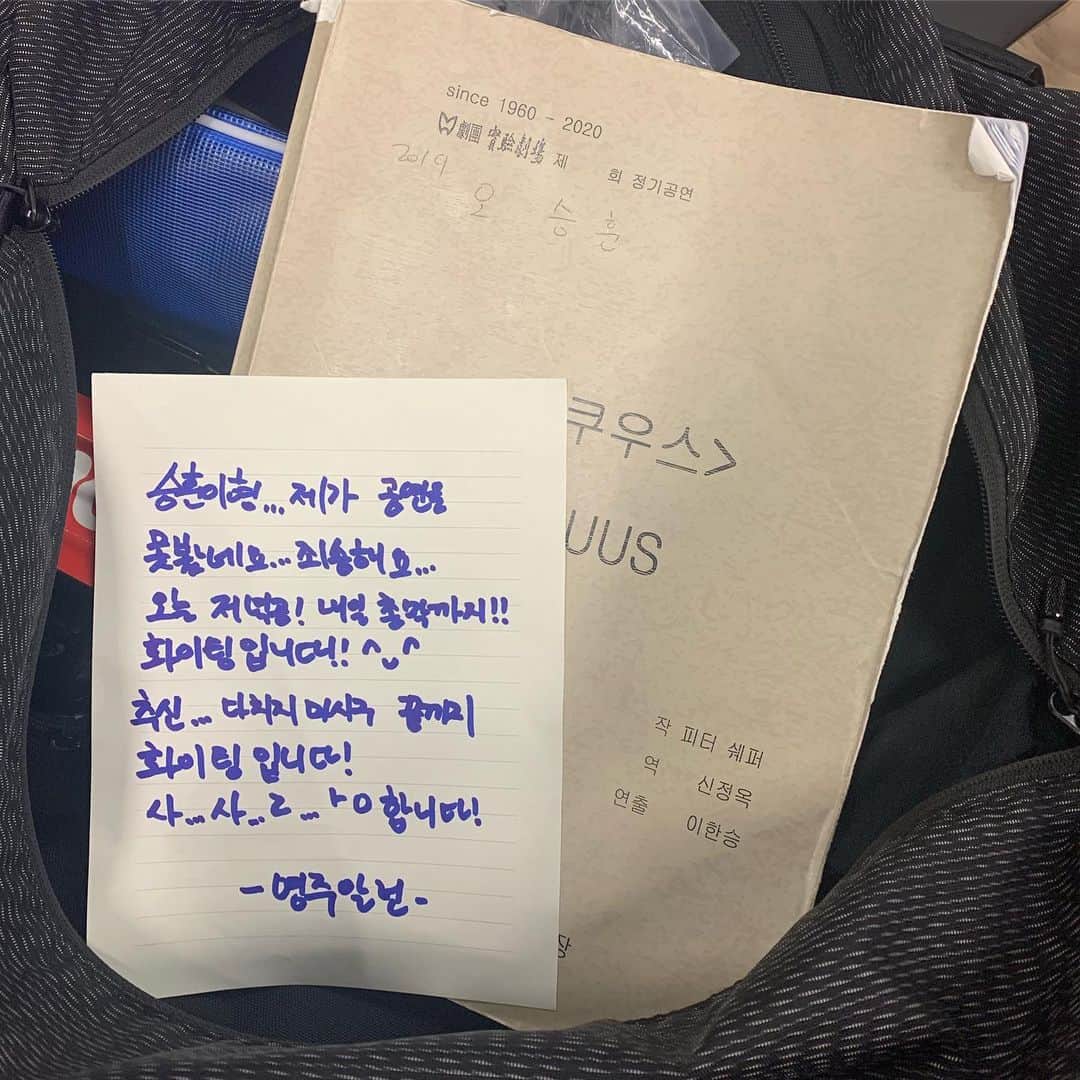 since 1960 - 2020
劇團 實驗劇場 제 회 정기공연
2019
오 승 훈
쿠우스>
UUS
작 피터 쉐퍼
역 신정옥
연출 이한승
장
승훈이형... 제가 공연을
못봤네요... 죄송해요...
오늘 저녁공! 내일 총막까지!!
화이팅입니다!! ^ᴗ^
추신... 다치지 마시구 끝까지
화이팅입니다!
사...사...ㄹ...ㅏㅇ합니다!
-영주알런-